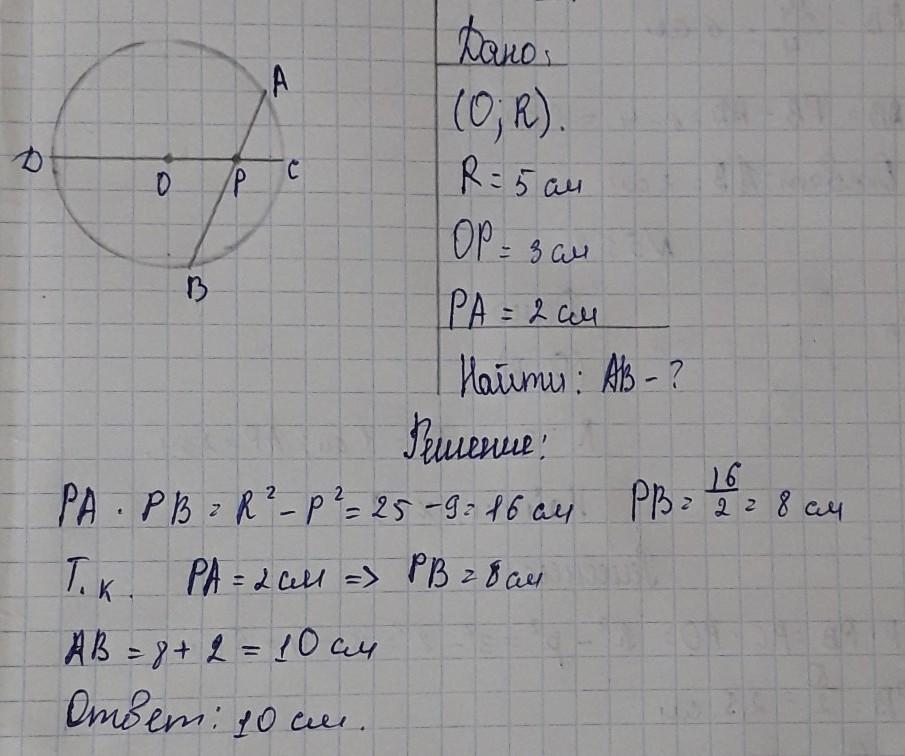 A
D
O
P
C
B
Дано:
(O; R).
R = 5 см
OP = 3 см
PA = 2 см
Найти: AB - ?
Решение:
PA · PB = R² - P² = 25 - 9 = 16 см PB = 16/2 = 8 см
Т.к. PA = 2 см => PB = 8 см
AB = 8 + 2 = 10 см
Ответ: 10 см.